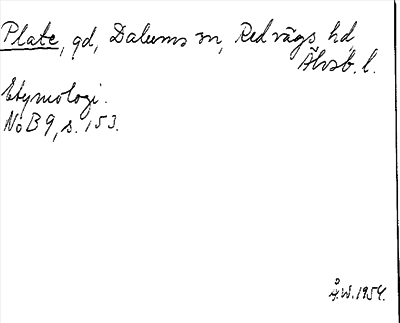 Plate, gd, Dalums sn, Redvägs hd,
Älvsb. l.
Etymologi.
NoB 9, s. 153.
Å.W. 1954.